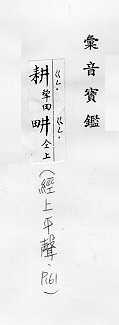 彙音寶鑑
耕 ㄍㄥ 犂田 畊 ㄍㄥ 仝上
(經上平聲、P161)